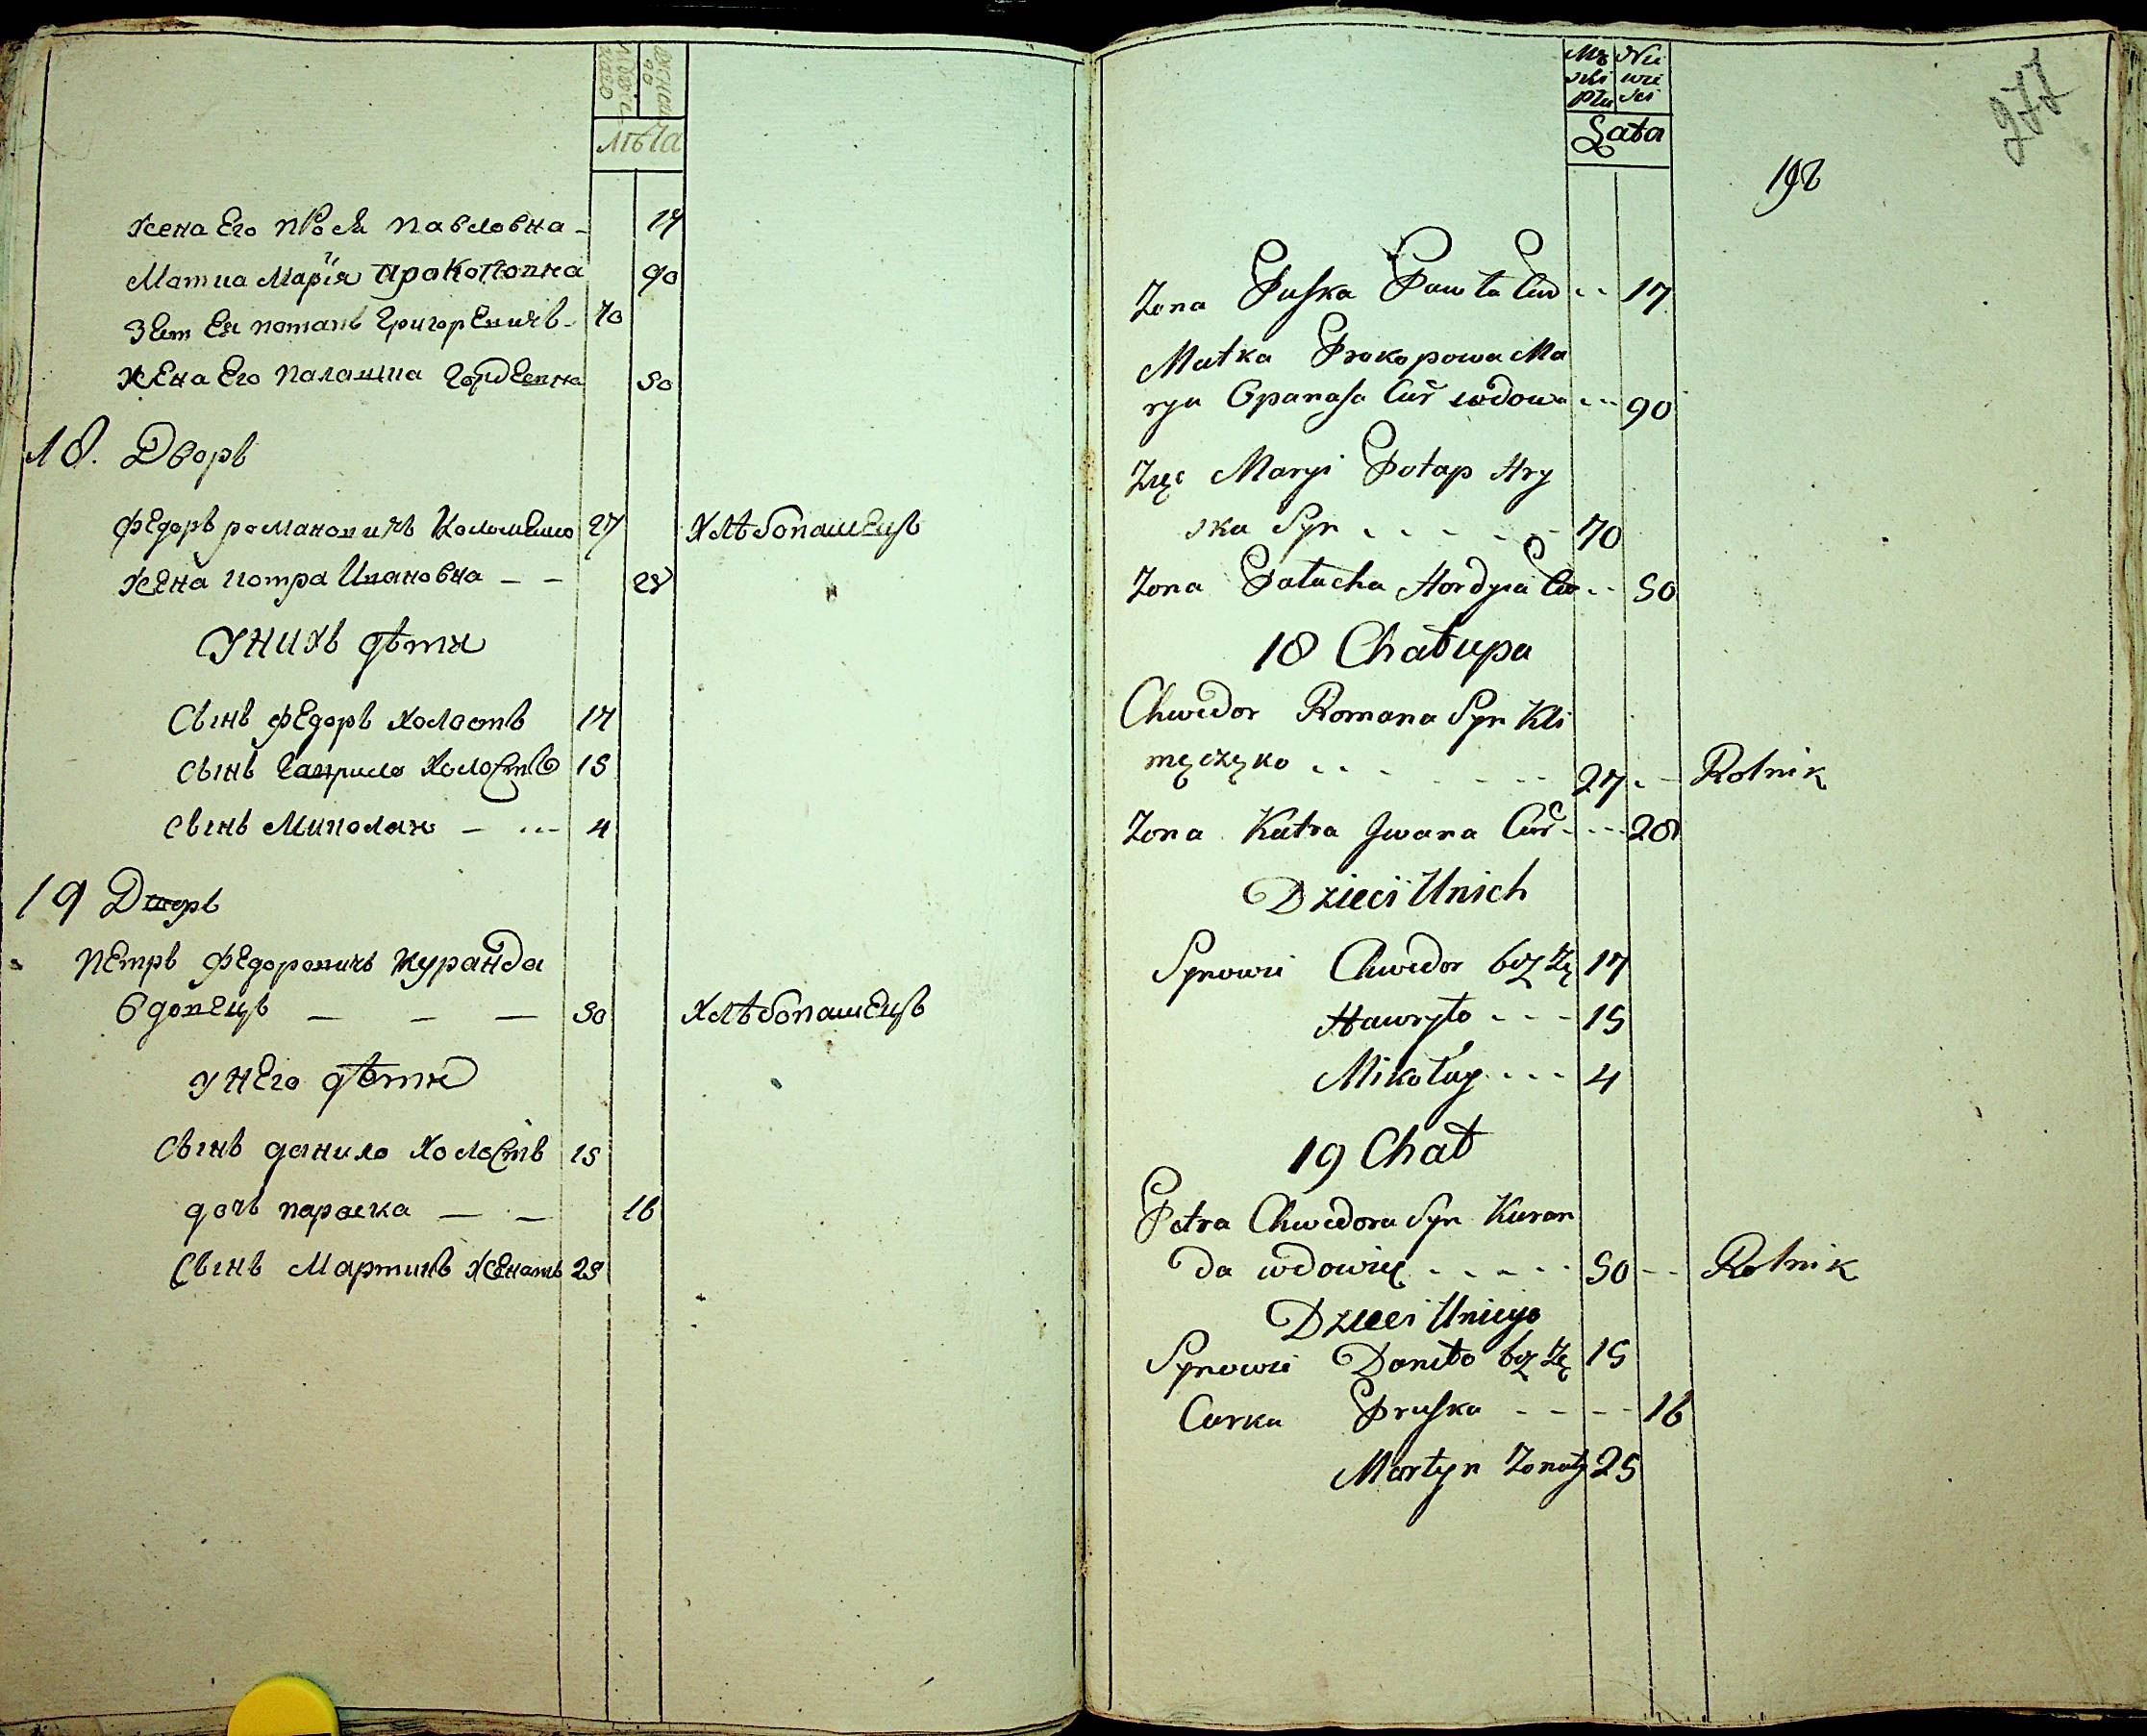 мужеска
женска
лѣта
жена Его прося павловна - 17
Матка Марїя прокоповна 90
Зет Ея потапъ Григоревичъ - 70
жена Его палашка Гордеевна 50
18. Дворъ
Федоръ романовичъ 27 Хлѣбопашецъ
жена катра Ивановна - - 28
У нихъ дѣти
Сынъ Федоръ холостъ 17
Сынъ Гаврило холостъ 15
Сынъ Миколай - ... 4
19 Дворъ
Петръ Федоровичъ Куранда
вдовецъ - - - 50 Хлѣбопашецъ
у него дѣти
Сынъ данило холостъ 15
дочь параска - - 16
Сынъ Мартинъ женатъ 25
277
Mę Nie
ski wie
Płci sci
Lata
198
Zona Paska Pawła Cur .. 17
Matka Prokopowa Ma
rya Opanasa Cur wdowa ... 90
Zięc Maryi Potap Hry
ska Syn . . - . - - 70
Zona Pałacha Hordyia Cur .. 50
18 Chałupa
Chwedor Romana Syn Kli
męczęko . . - - - - 27 . - Rolnik
Zona Katra Jwana Cur - - - 28
Dzieci Unich
Synowie Chwedor bez Zę 17
Hawryło - - - 15
Mikołay . - - 4
19 Chat
Petra Chwedora Syn Kuran
da wdowiec . . - - - . 50 - - Rolnik
Dzieci Uniego
Synowie Daniło bez Zę 15
Curka Praska - - - - 16
Martyn Zonaty 25